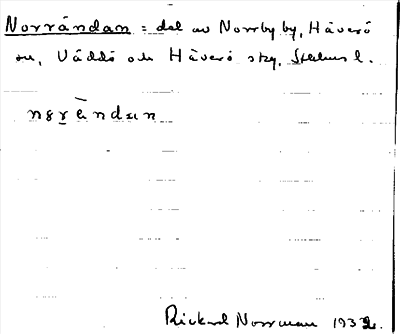 Norrándan = del av Norrby by, Häverö
sn, Väddö och Häverö skg, Stockholms l.
Rickard Norrman 1932.